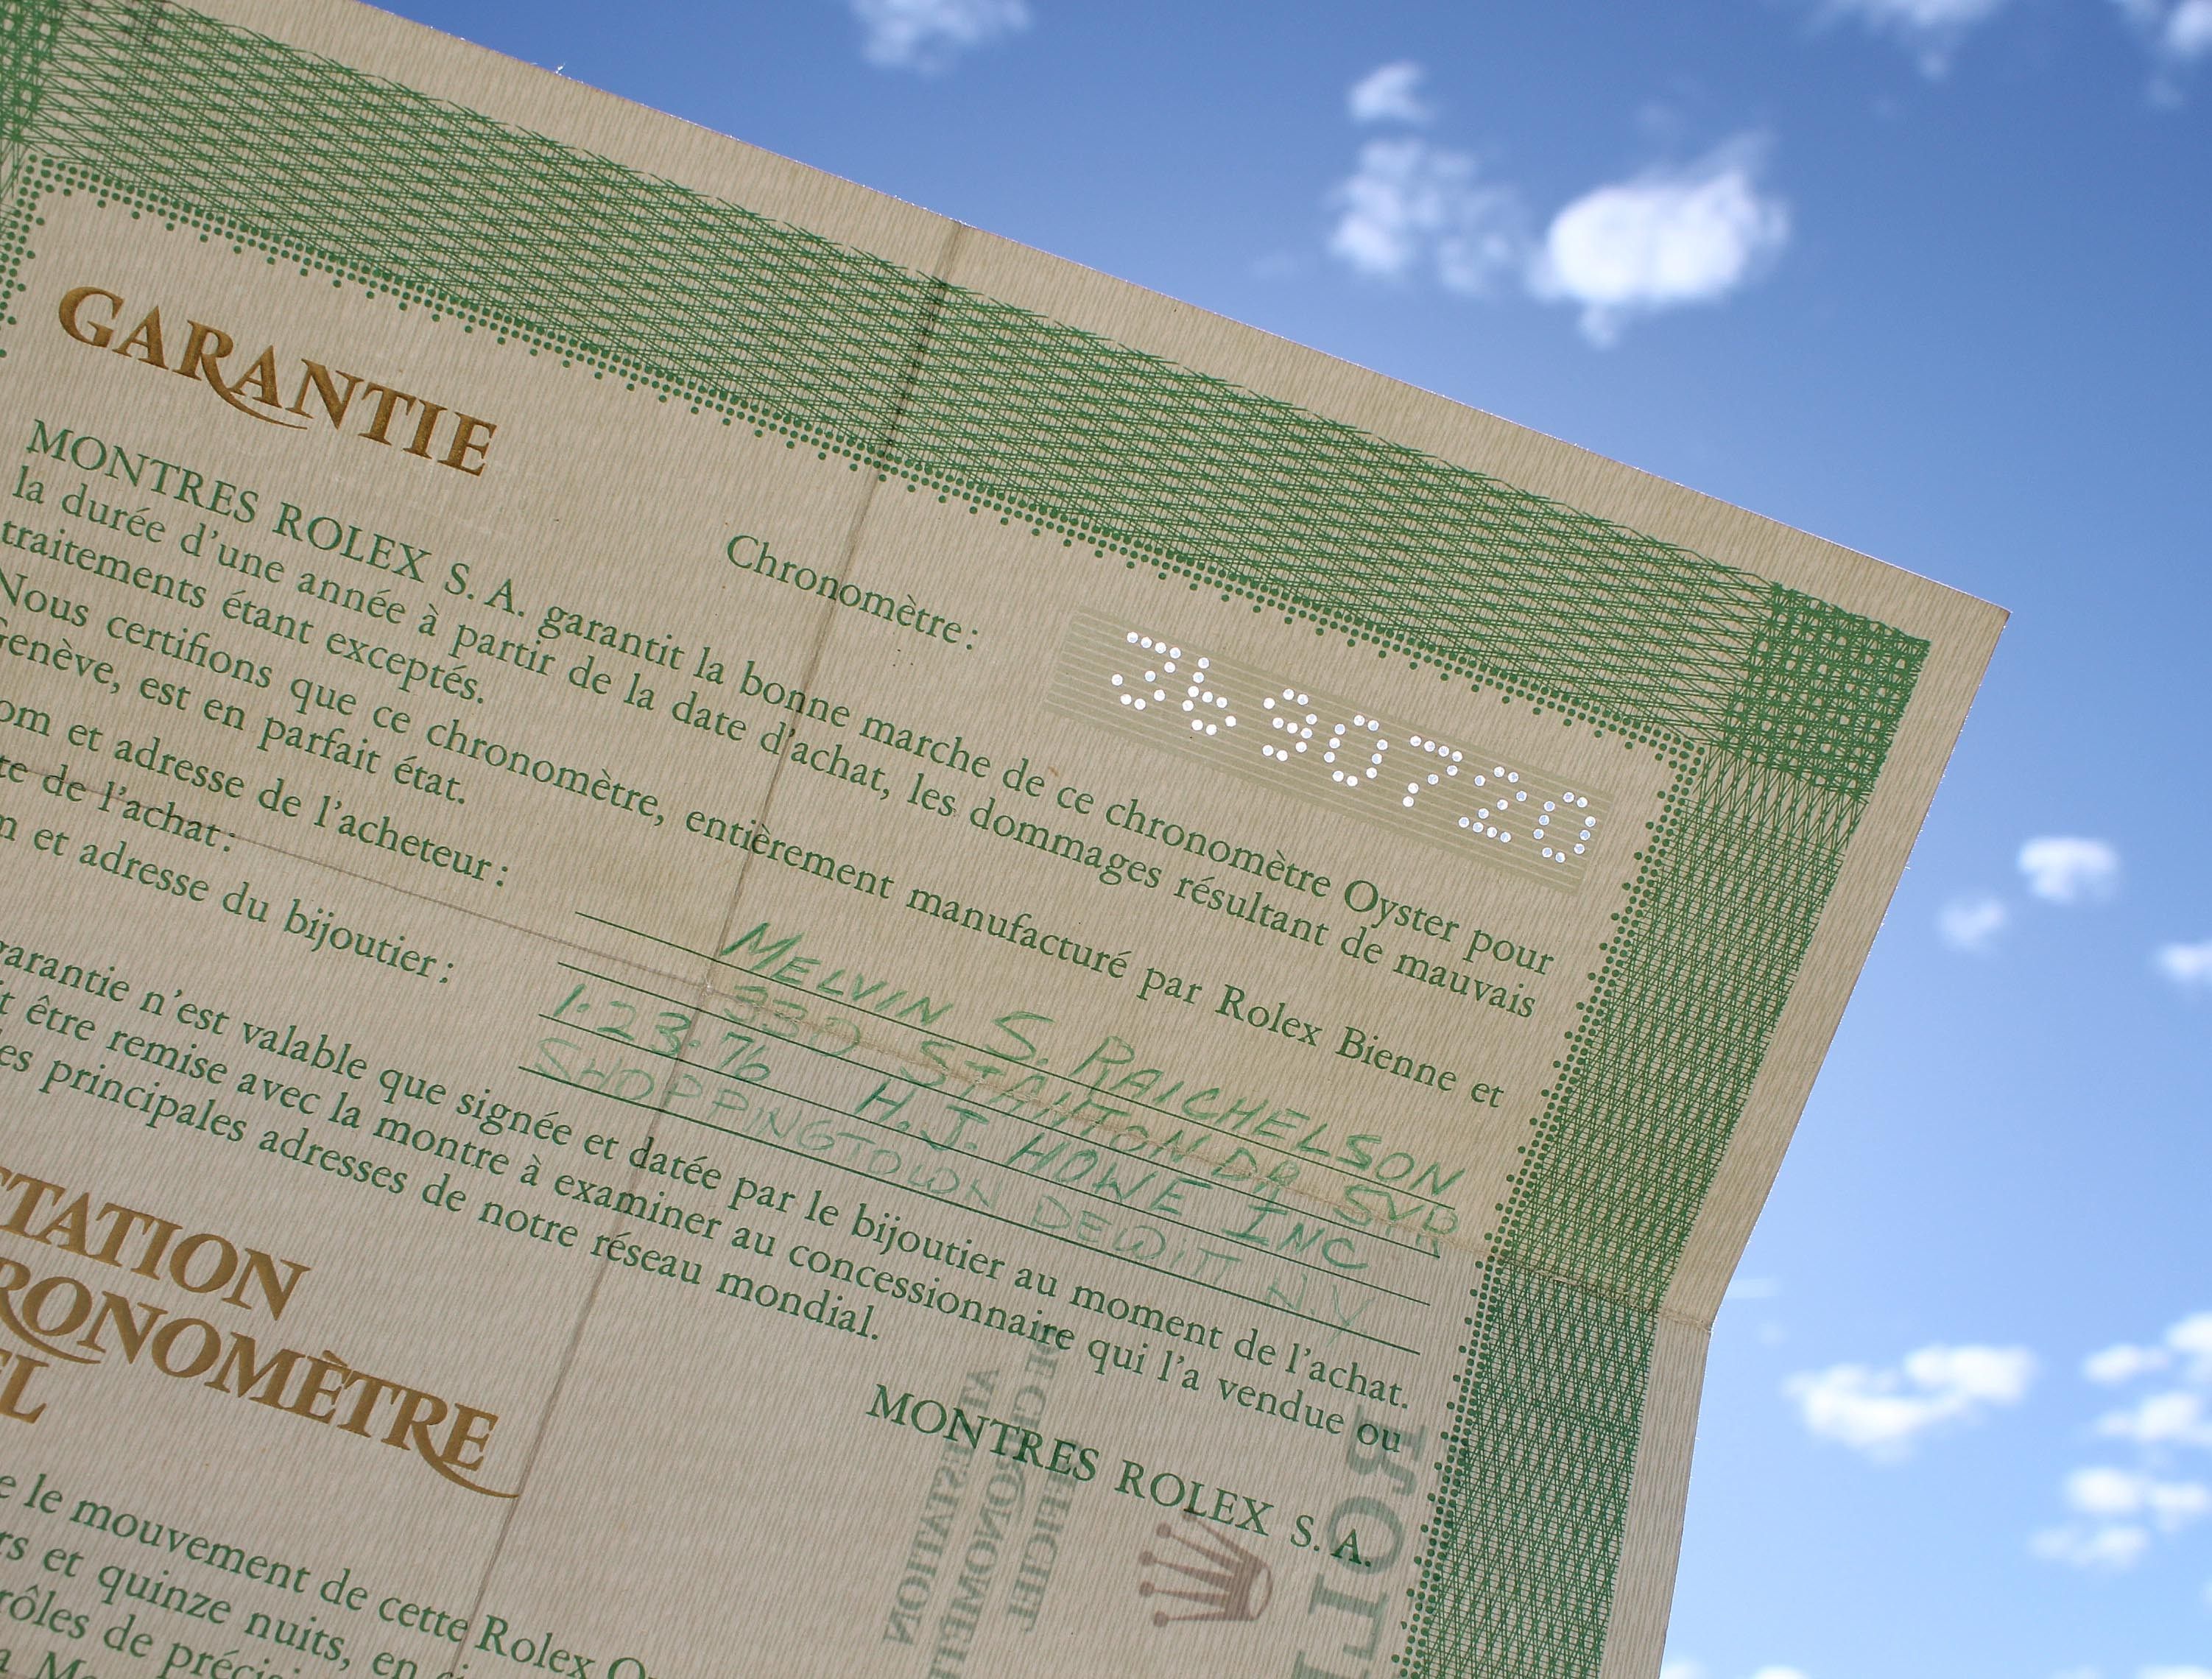 GARANTIE
Chronomètre: 3690720
MONTRES ROLEX S. A. garantit la bonne marche de ce chronomètre Oyster pour
la durée d'une année à partir de la date d'achat, les dommages résultant de mauvais
traitements étant exceptés.
Nous certifions que ce chronomètre, entièrement manufacturé par Rolex Bienne et
Genève, est en parfait état.
om et adresse de l'acheteur: MELVIN S. RAICHELSON
339 STANTON DR SYR
te de l'achat: 1.23.76 H.J. HOWE INC
m et adresse du bijoutier: SHOPPINGTOWN DEWITT N.Y
garantie n'est valable que signée et datée par le bijoutier au moment de l'achat.
t être remise avec la montre à examiner au concessionnaire qui l'a vendue ou
es principales adresses de notre réseau mondial.
MONTRES ROLEX S. A.
TATION
RONOMÈTRE
EL
e le mouvement de cette Rolex
rs et quinze nuits, en
rôles de
ROL
ATTESTATION
DE CHRONOMÈTRE
OFFICIEL